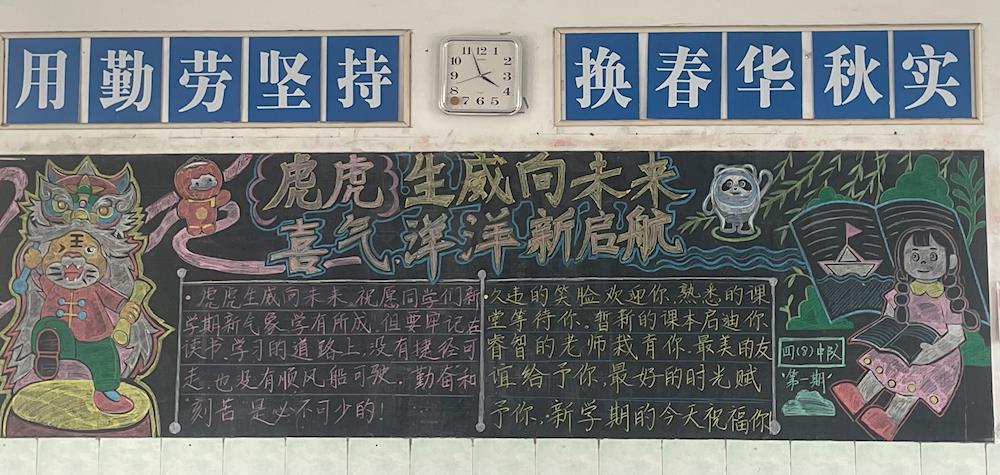 用勤劳坚持
换春华秋实
11 12 1
2
3
4
5
6
7
8
9
10
虎虎生威向未来
喜气洋洋新启航
·虎虎生威向未来,祝愿同学们新
学期新气象,学有所成,但要牢记在
读书、学习的道路上,没有捷径可
走,也没有顺风船可驶,勤奋和
刻苦是必不可少的!
·久违的笑脸欢迎你,熟悉的课
堂等待你。暂新的课本启迪你
睿智的老师栽育你,最美的友
谊给予你,最好的时光赋
予你,新学期的今天祝福你
四(8)中队
第一期
王